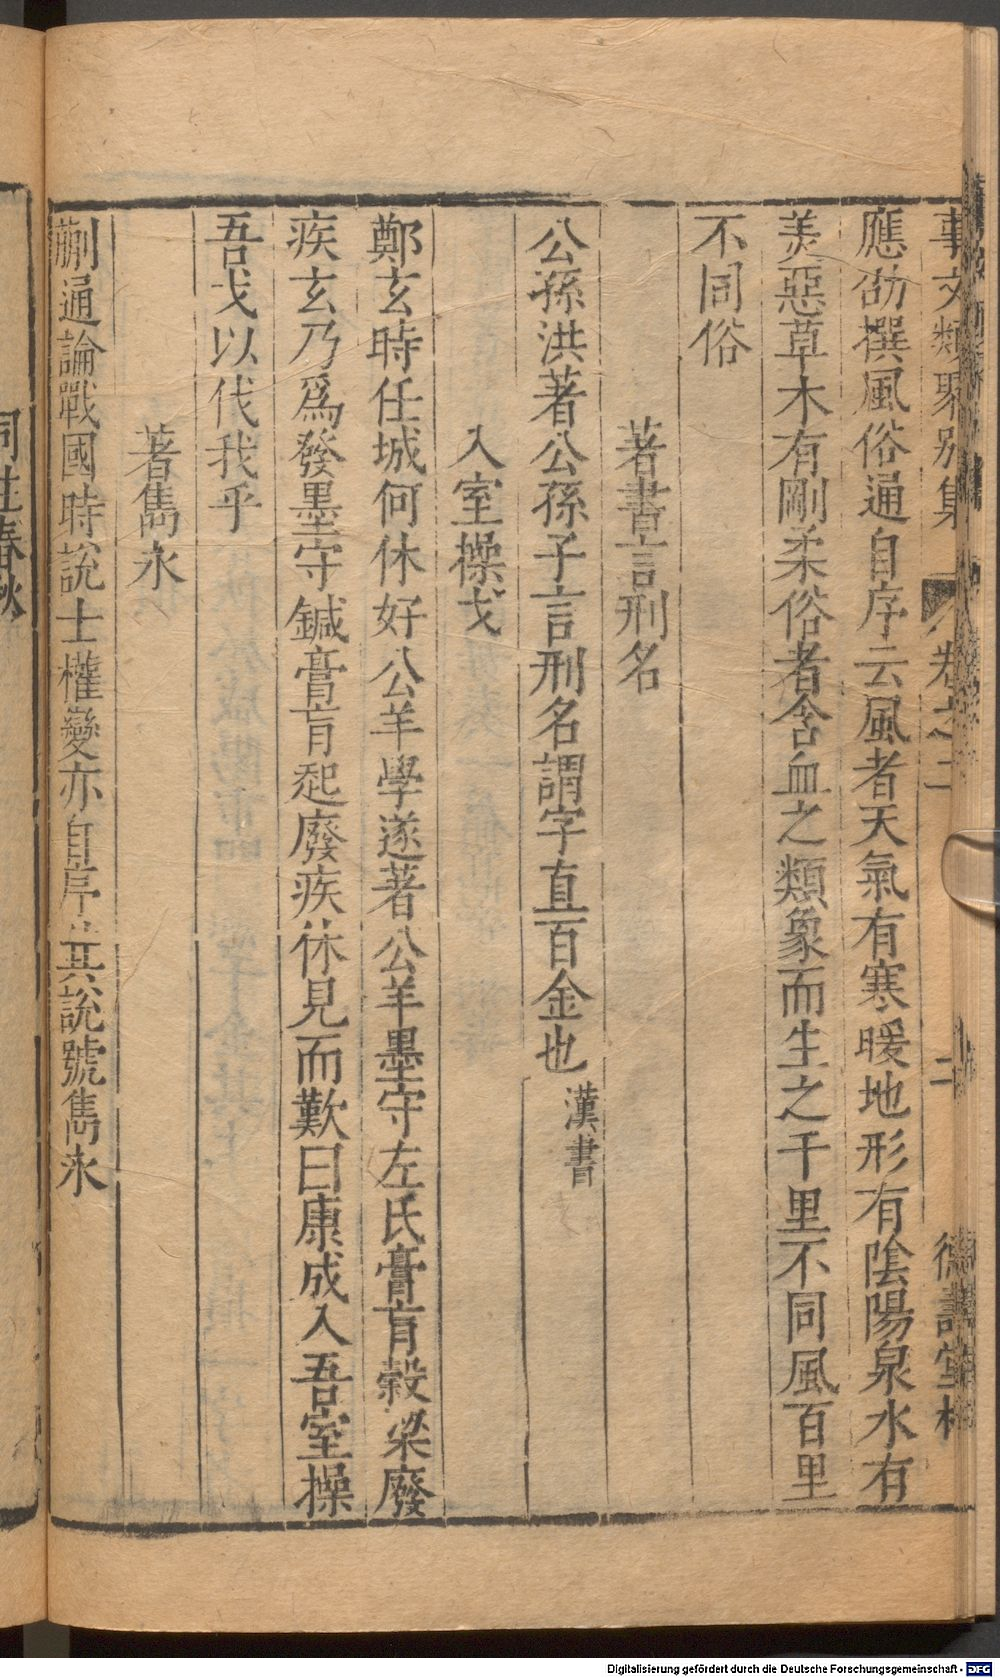 事文類聚別集 卷之二 二 德壽堂梓
應劭撰風俗通自序云風者天氣有寒暖地形有陰陽泉水有
羙惡草木有剛柔俗者含血之類象而生之千里不同風百里
不同俗
著書言刑名
公孫洪著公孫子言刑名謂字直百金也 漢書
入室操戈
鄭玄時任城何休好公羊學遂著公羊墨守左氏膏肓榖梁廢
疾玄乃爲發墨守鍼膏肓起廢疾休見而歎曰康成入吾室操
吾戈以代我乎
著雋永
蒯通論戰國時說士權變亦自序其說號雋永
同姓春秋
Digitalisierung gefördert durch die Deutsche Forschungsgemeinschaft - DFG